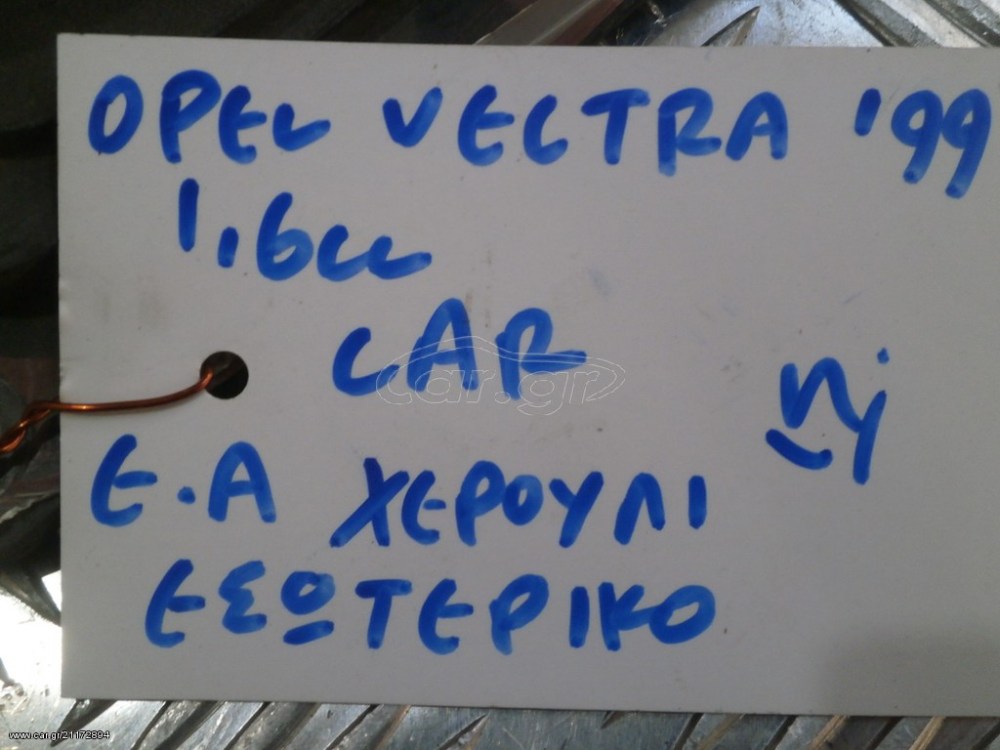 OPEL VECTRA '99
1,6cc
CAR
nj
Ε.Α ΧΕΡΟΥΛΙ
ΕΣΩΤΕΡΙΚΟ
car.gr
www.car.gr/21172894